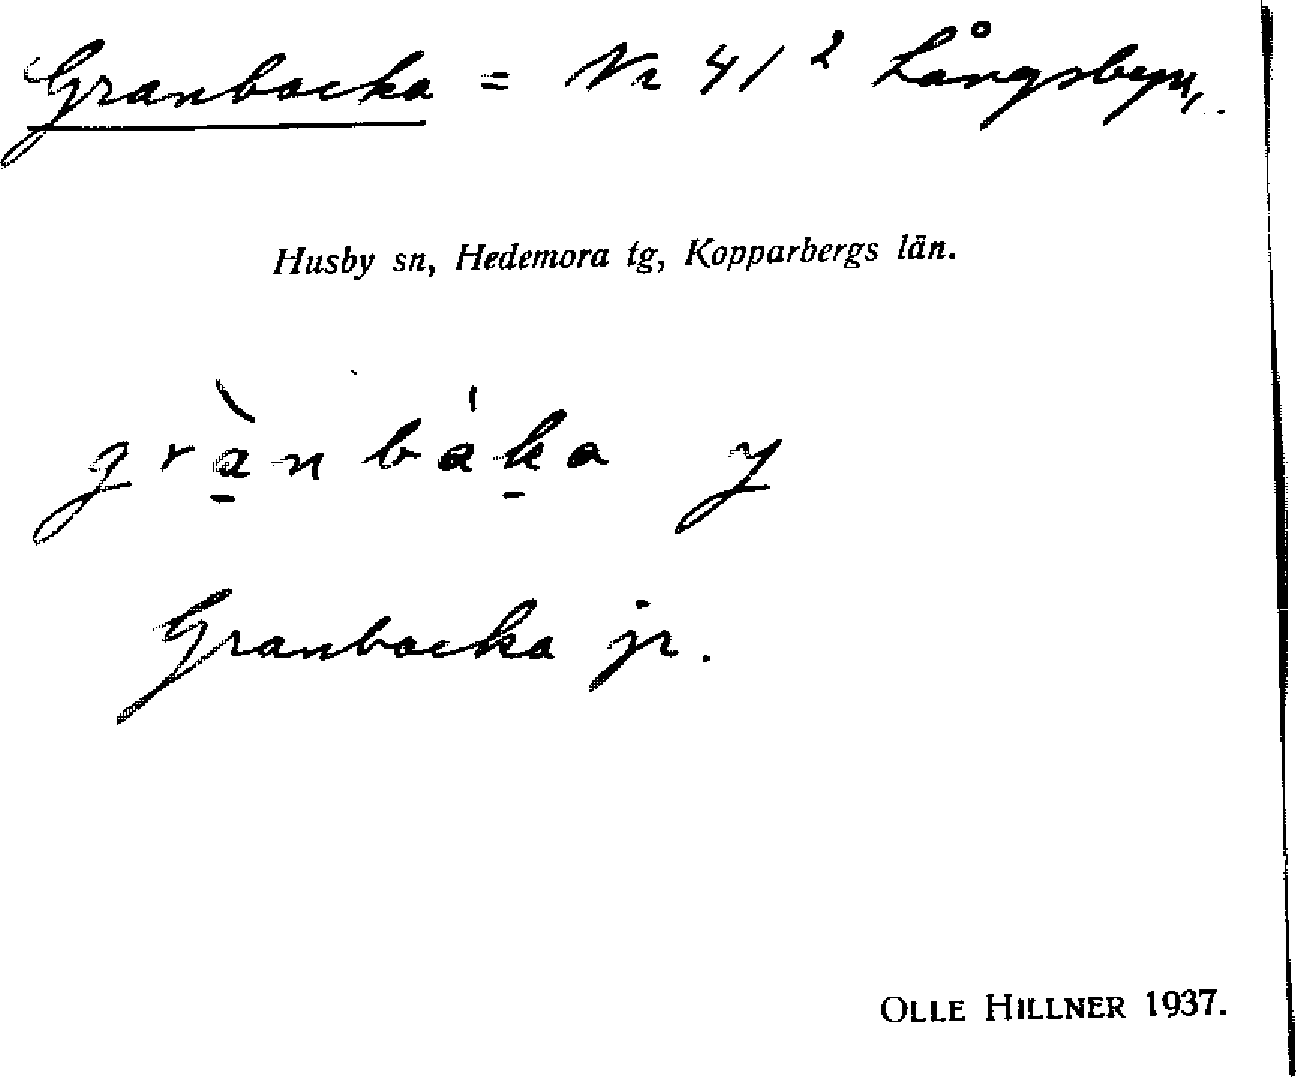 Granbacka = Nr 41² Långsbyn,
Husby sn, Hedemora tg, Kopparbergs län.
gràn báka y
Granbacka jr.
OLLE HILLNER 1937.